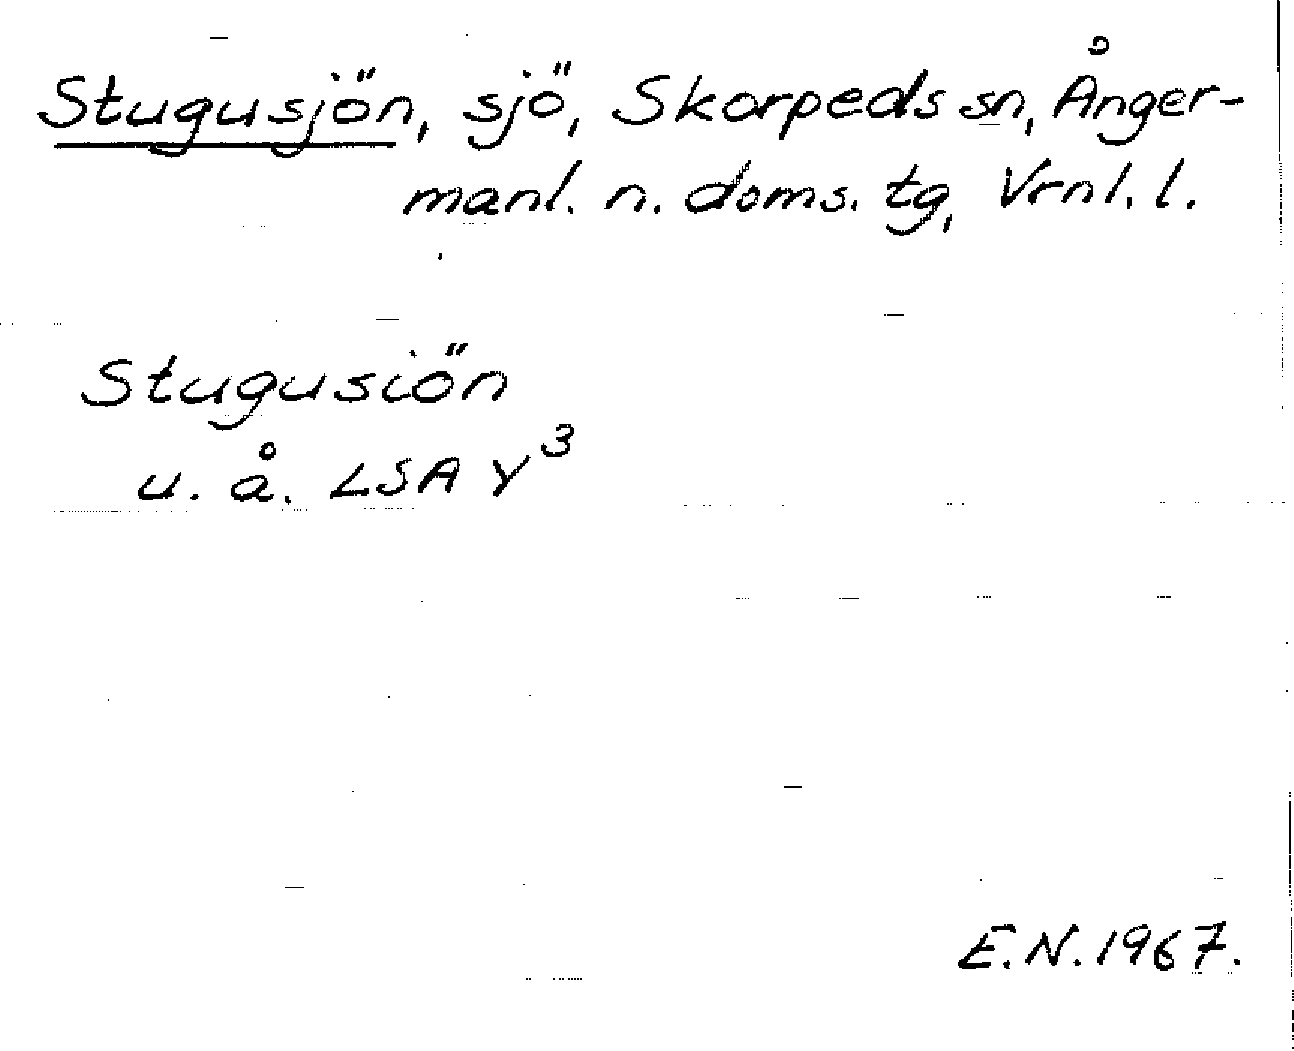 Stugusjön, sjö, Skorpeds sn, Ånger-
manl. n. doms. tg, Vrnl. l.
Stugusiön
u. å. LSA Y³
E.N. 1967.